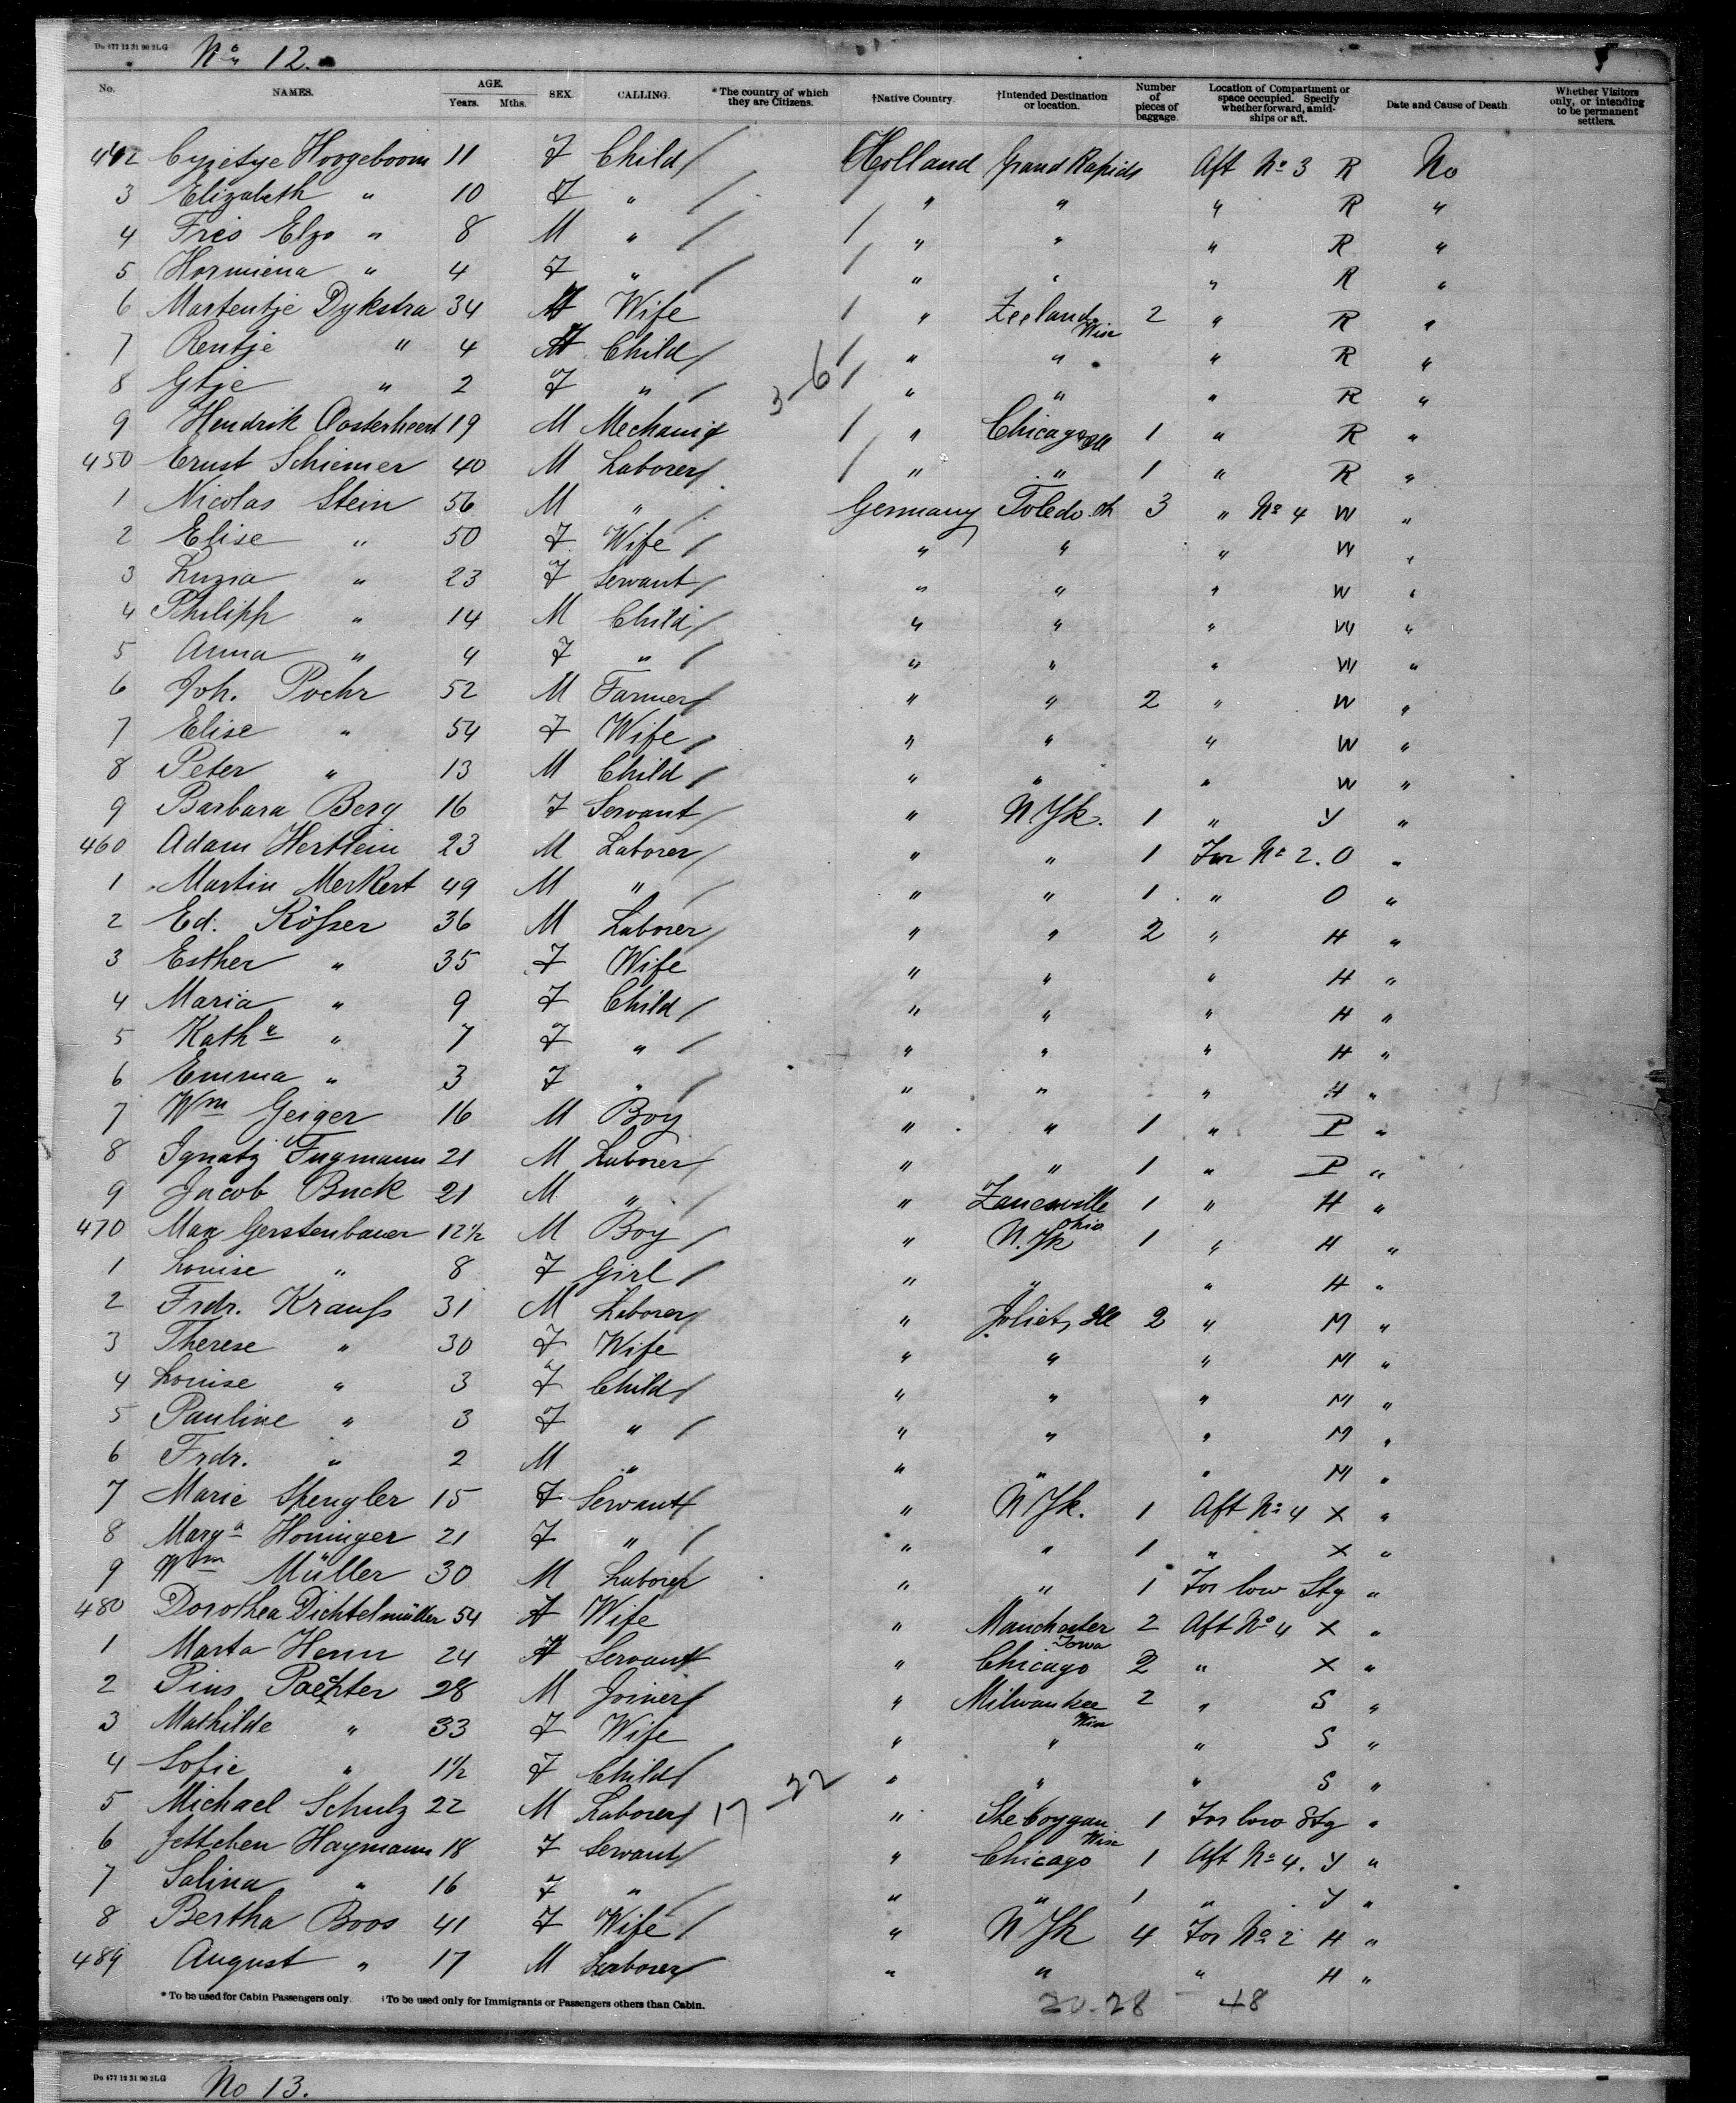 Do 477 12 31 90 2LG
No 12.
No. NAMES. AGE. Years. Mths. SEX. CALLING. *The country of which they are Citizens. †Native Country. †Intended Destination or location. Number of pieces of baggage. Location of Compartment or space occupied. Specify whether forward, amidships or aft. Date and Cause of Death. Whether Visitors only, or intending to be permanent settlers.
442 Hoogeboom 11 F Child / Holland Grand Rapids Aft No 3 R No
3 Elizabeth " 10 F " / " " " R "
4 Fries Elzo " 8 M " / / " " " R "
5 Harmiena " 4 F " / / " " " R "
6 Martentje Dykstra 34 F Wife / " Zeeland Wisc 2 " R "
7 Rentje " 4 Child / / " " " R "
8 Gtje " 2 F " / 3-6 / " " " R "
9 Hendrik Oosterheert 19 M Mechanic / " Chicago Ill 1 " R "
450 Ernst Schiemer 40 M Laborer / / " " 1 " R "
1 Nicolas Stein 56 M " / Germany Toledo Oh 3 " No 4 W "
2 Elise " 50 F Wife / " " " W "
3 Luzia " 23 F Servant / " " " W "
4 Philipp " 14 M Child / " " " W "
5 Anna " 4 F " / " " " W "
6 Joh. Pochr 52 M Farmer / " " 2 " W "
7 Elise " 54 F Wife / " " " W "
8 Peter " 13 M Child / " " " W "
9 Barbara Berg 16 F Servant / " N.Yk. 1 " Y "
460 Adam Hertlein 23 M Laborer / " " 1 For No 2. O "
1 Martin Merkert 49 M " / " " 1 " O "
2 Ed. Rößer 36 M Laborer / " " 2 " H "
3 Esther " 35 F Wife " " " H "
4 Maria " 9 F Child / " " " H "
5 Katha " 7 F " / " " " H "
6 Emma " 3 F " / " " " H "
7 Wm Geiger 16 M Boy " " 1 " P "
8 Ignatz Fugmann 21 M Laborer / " " 1 " P "
9 Jacob Buck 21 M " / " Zanesville Ohio 1 " H "
470 Max Gerstenbauer 12½ M Boy / " N.Yk 1 " H "
1 Louise " 8 F Girl / " " " H "
2 Frdr. Krauß 31 M Laborer / " Joliet, Ill 2 " M "
3 Therese " 30 F Wife " " " M "
4 Louise " 3 F Child / " " " M "
5 Pauline " 3 F " / " " " M "
6 Frdr. " 2 M " " " " M "
7 Marie Spengler 15 F Servant / " N Yk. 1 Aft No 4 X "
8 Marga Honinger 21 F " / " " 1 " X "
9 Wm Müller 30 M Laborer " " 1 For low Stg "
480 Dorothea Dichtelmüller 54 F Wife " Manchester Iowa 2 Aft No 4 X "
1 Marta Henn 24 F Servant " Chicago 2 " X "
2 Pius Paechter 28 M Joiner / " Milwaukee Wisc 2 " S "
3 Mathilde " 33 F Wife " " " S "
4 Sofie " 1½ F Child / " " " S "
5 Michael Schulz 22 M Laborer / 17 - 22 " Sheboygan Wisc 1 For low Stg "
6 Jettchen Haymann 18 F Servant / " Chicago 1 Aft No 4. Y "
7 Salina " 16 F " / " " 1 " Y "
8 Bertha Boos 41 F Wife / " N Yk 4 For No 2 H "
489 August " 17 M Laborer / " " " H "
*To be used for Cabin Passengers only. †To be used only for Immigrants or Passengers others than Cabin.
20-28 48
Do 477 12 31 90 2LG
No 13.